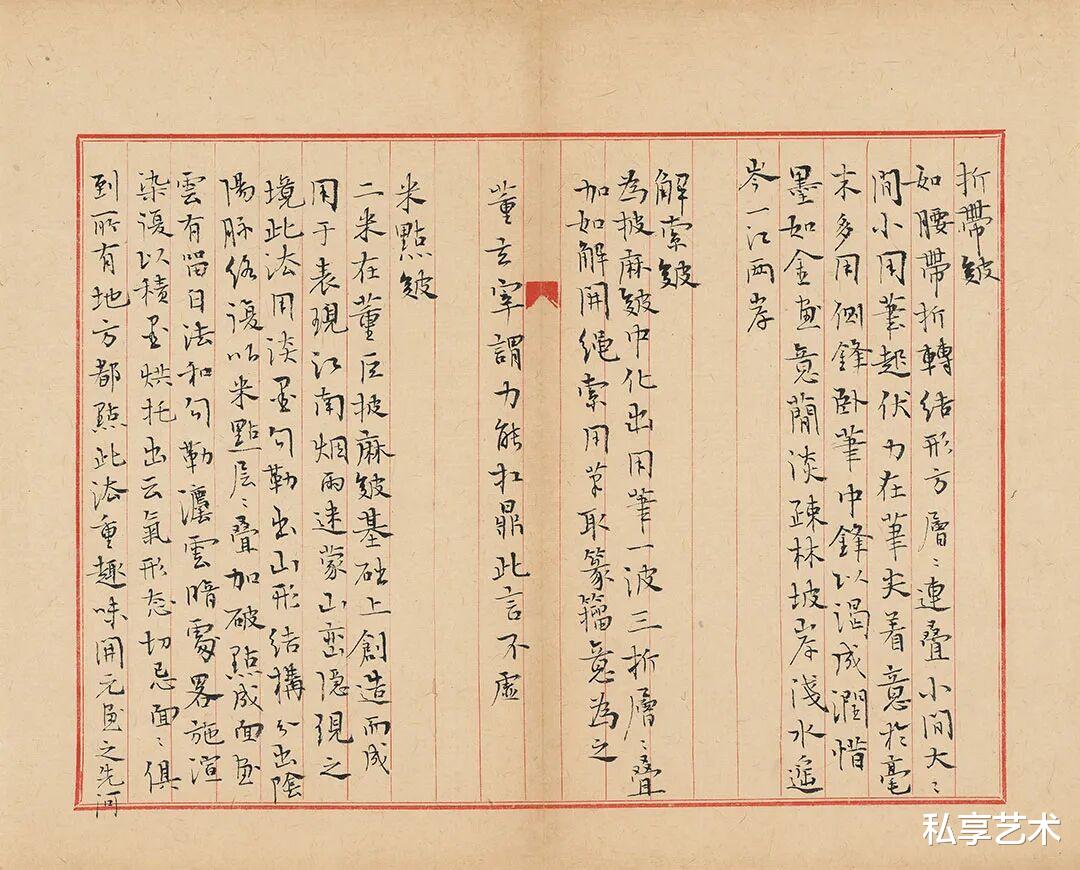 折帶皴
如腰帶折轉結形方層〻連疊小間大〻
間小用筆起伏力在筆尖着意於毫
末多用側鋒卧筆中鋒以渴成潤惜
墨如金畫意蕳淡疎林坡岸淺水遥
岑一江两岸
解索皴
為披麻皴中化出用筆一波三折層〻疊
加如解開绳索用筆取篆籀意為之
董玄宰謂力能扛鼎此言不虛
米點皴
二米在董巨披麻皴基础上創造而成
用于表現江南烟雨迷蒙山峦隐現之
境此法用淡墨勾勒出山形结構分出陰
陽脉络復以米點层〻疊加破點成面画
雲有留白法和勾勒灋雲暗處畧施渲
染復以積墨烘托出云氣形态切忌面〻俱
到所有地方都點此法重趣味開元画之先河
私享艺术